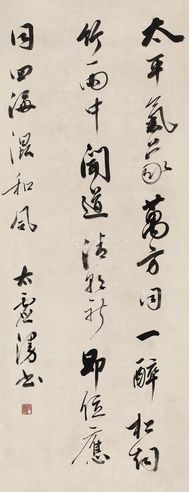 太平氣象萬方同一醉松
竹雨中聞道清朝新即位應
同四海混和風 太虛漫書